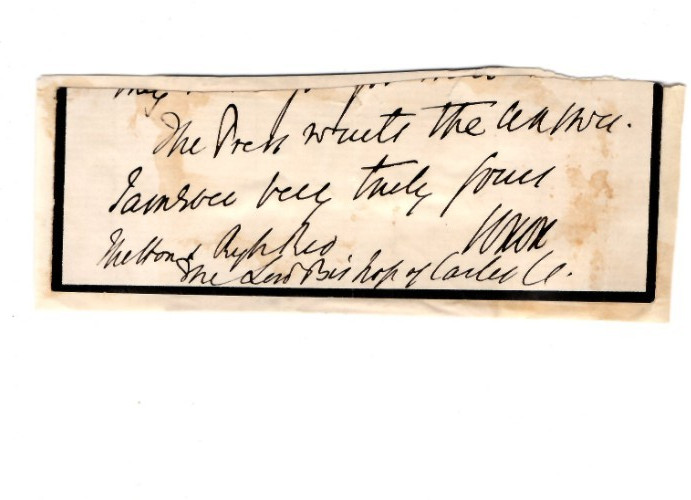 The Press wants the answer.
I am ever very truly yours
S Oxon
The Hon & Right Rev
The Lord Bishop of Carlisle.